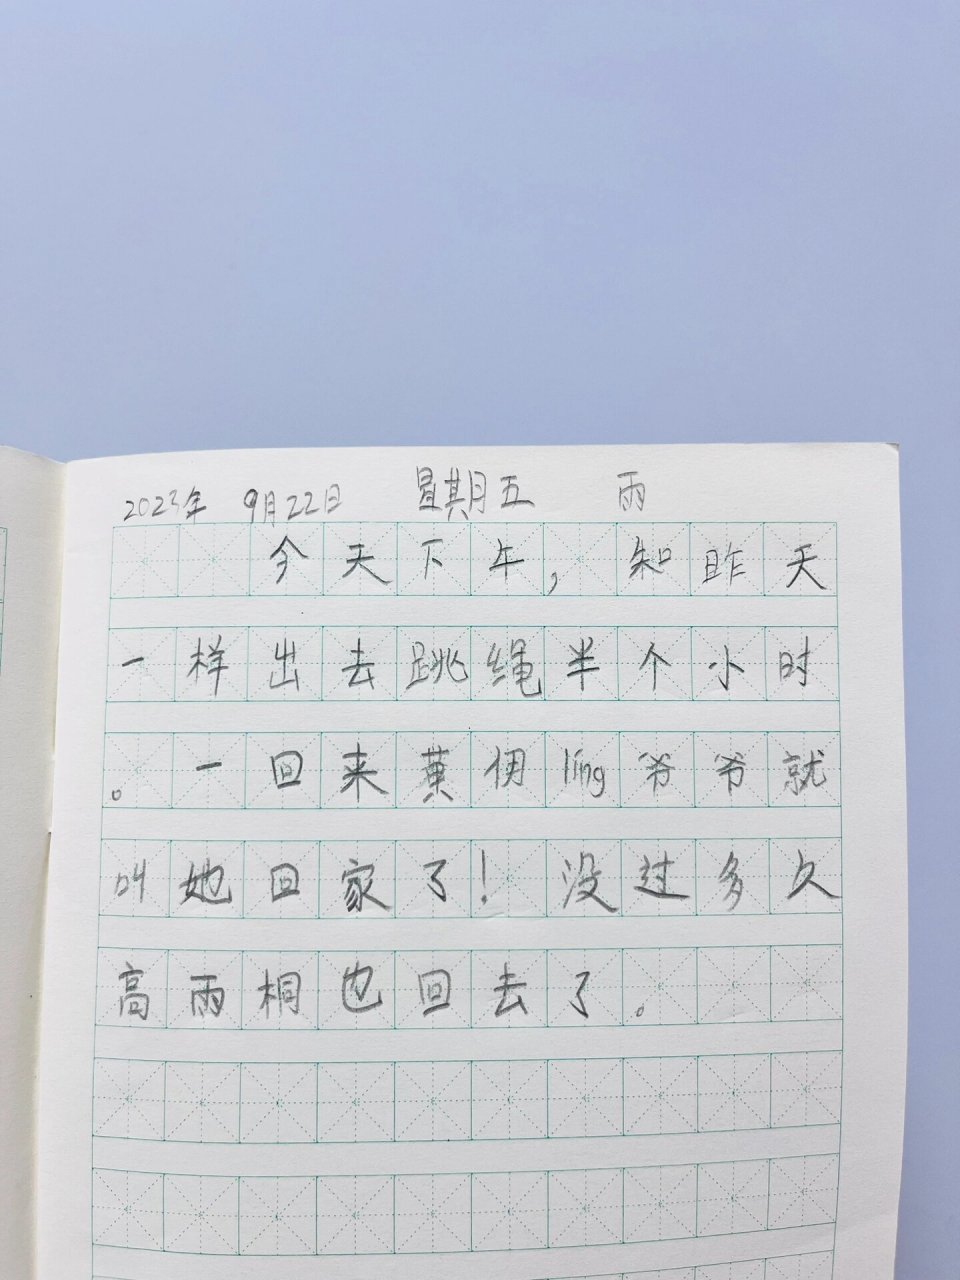 2023年 9月22日 星期五 雨
今天下午，知昨天
一样出去跳绳半个小时
。一回来黄伊ling爷爷就
叫她回家了！没过多久
高雨桐也回去了。